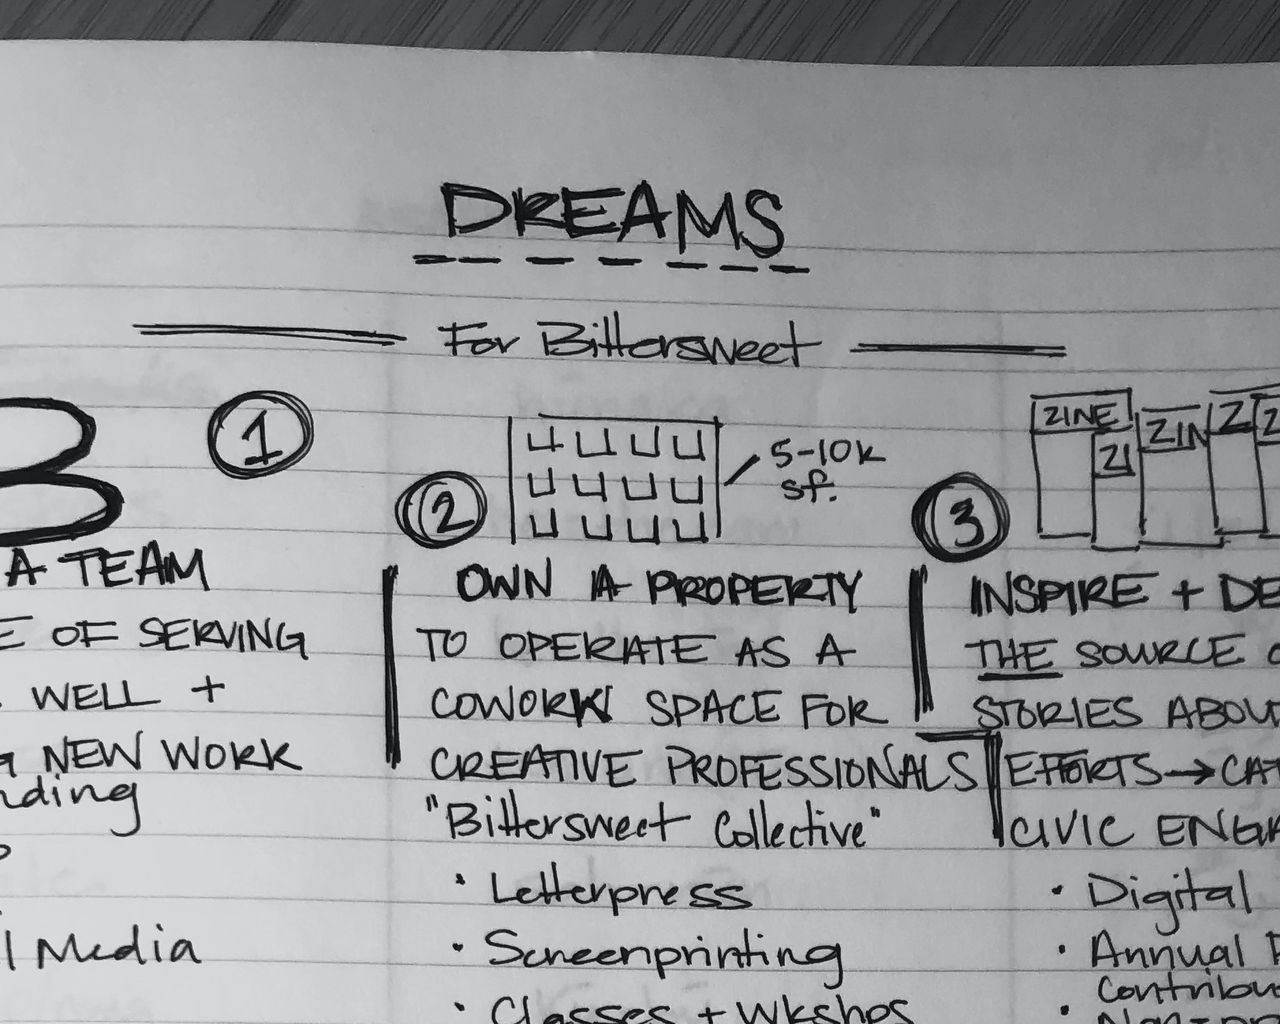 DREAMS
For Bittersweet
1
A TEAM
OF SERVING
WELL +
NEW WORK
Media
2
5-10k
sf.
OWN A PROPERTY
TO OPERATE AS A
COWORK SPACE FOR
CREATIVE PROFESSIONALS
"Bittersweet Collective"
• Letterpress
• Screenprinting
• Classes + Wkshops
3
ZINE
ZI
ZIN
Z
Z
INSPIRE + DE
THE SOURCE
STORIES ABOU
EFFORTS → CAT
CIVIC ENG
• Digital
• Annual
Contribu